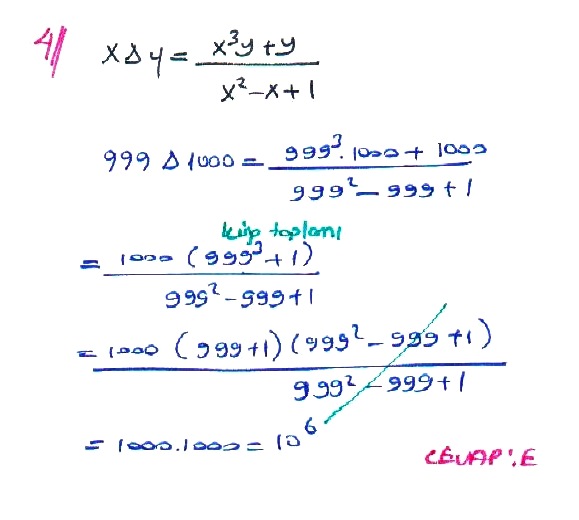 4// x Δ y = x³y + y / x² - x + 1
999 Δ 1000 = 999³ . 1000 + 1000 / 999² - 999 + 1
küp toplamı
= 1000 (999³ + 1) / 999² - 999 + 1
= 1000 (999 + 1) (999² - 999 + 1) / 999² - 999 + 1
= 1000 . 1000 = 10⁶
CEVAP : E